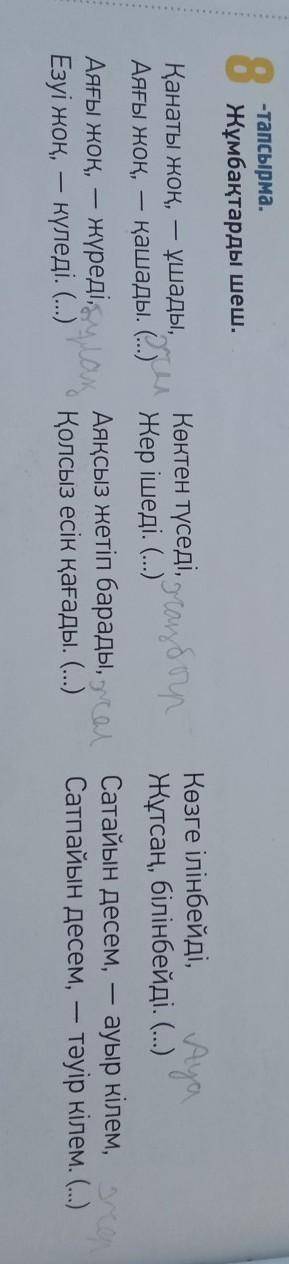 8-тапсырма.
Жұмбақтарды шеш.
Қанаты жоқ, — ұшады,
Аяғы жоқ, — қашады. (...) жел
Аяғы жоқ, — жүреді,
Езуі жоқ, — күледі. (...) бұлақ
Көктен түседі,
Жер ішеді. (...) жаңбыр
Аяқсыз жетіп барады,
Қолсыз есік қағады. (...) жел
Көзге ілінбейді,
Жұтсаң, білінбейді. (...) Ауа
Сатайын десем, — ауыр кілем,
Сатпайын десем, — тәуір кілем. (...) жер